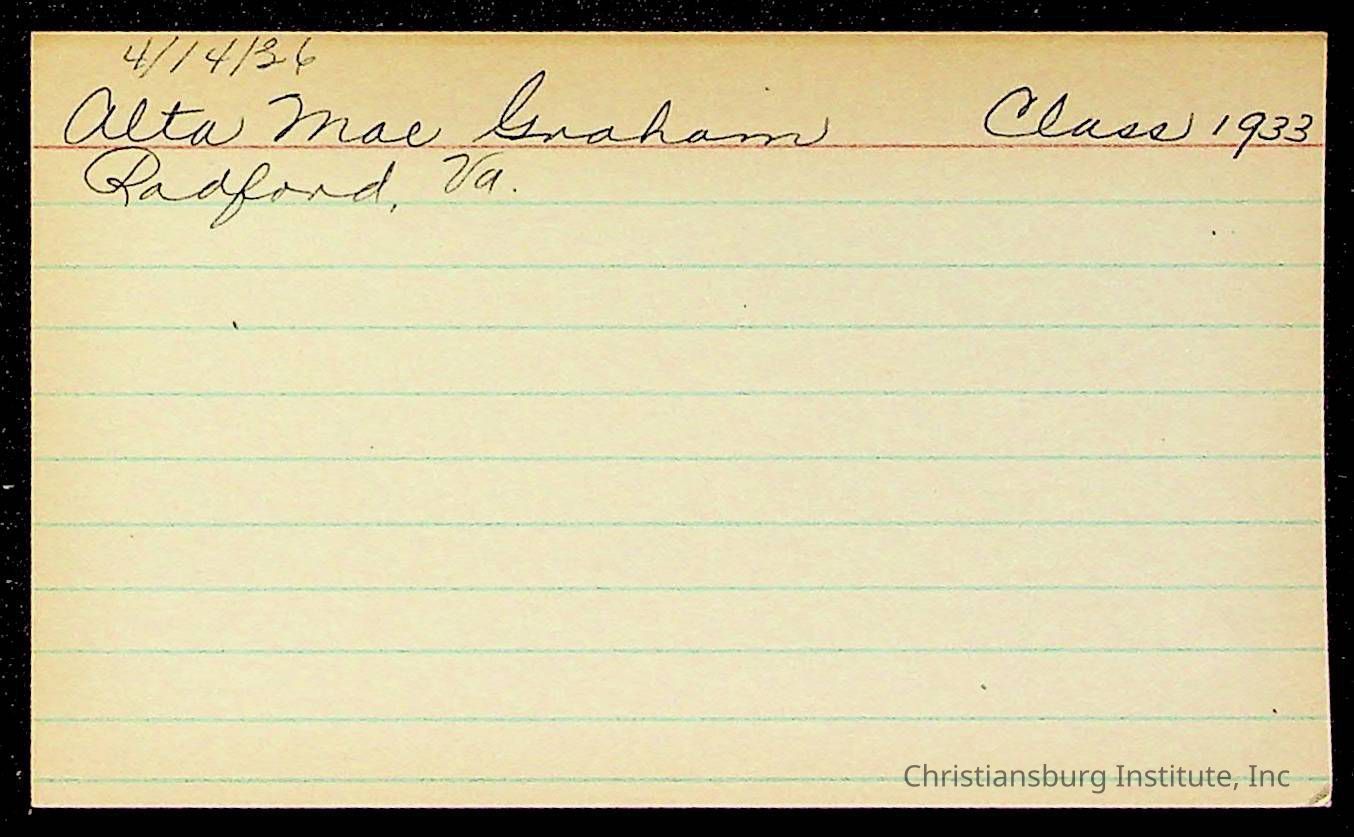 4/14/36
Alta Mae Graham Class 1933
Radford, Va.
Christiansburg Institute, Inc